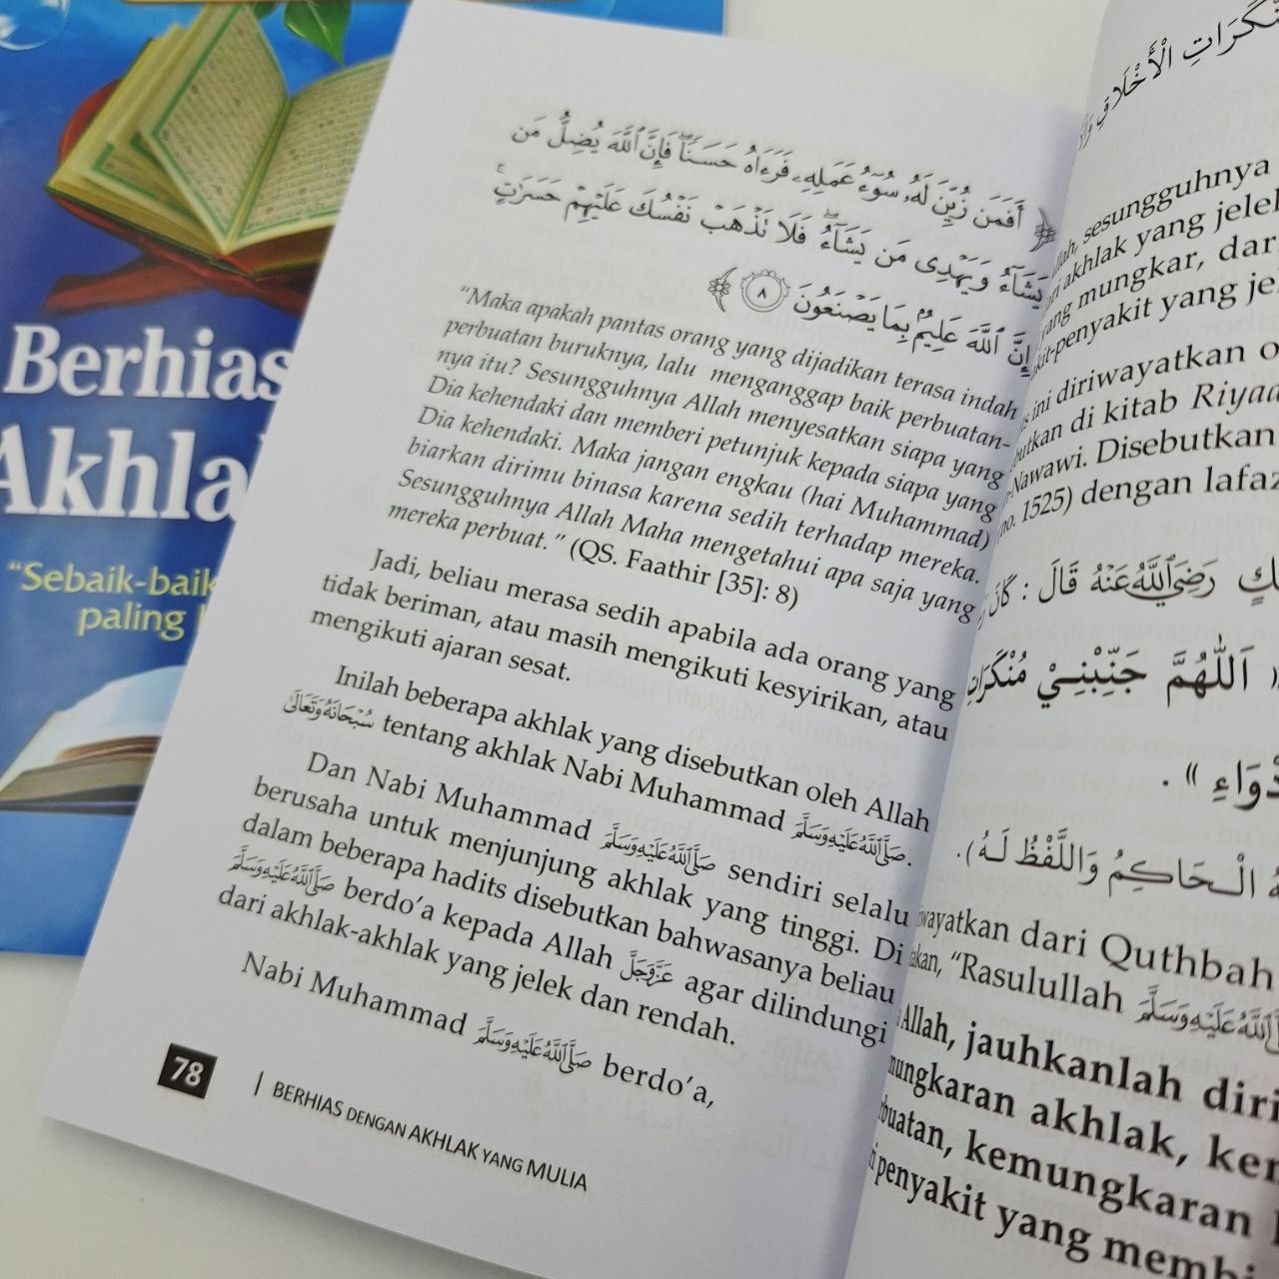 Berhias
Akhla
"Sebaik-baik
paling
﴿ أَفَمَن زُيِّنَ لَهُۥ سُوٓءُ عَمَلِهِۦ فَرَءَاهُ حَسَنًا ۖ فَإِنَّ ٱللَّهَ يُضِلُّ مَن
يَشَآءُ وَيَهْدِى مَن يَشَآءُ ۖ فَلَا تَذْهَبْ نَفْسُكَ عَلَيْهِمْ حَسَرَٰتٍ ۚ
إِنَّ ٱللَّهَ عَلِيمٌۢ بِمَا يَصْنَعُونَ ٨ ﴾
"Maka apakah pantas orang yang dijadikan terasa indah
perbuatan buruknya, lalu menganggap baik perbuatan-
nya itu? Sesungguhnya Allah menyesatkan siapa yang
Dia kehendaki dan memberi petunjuk kepada siapa yang
Dia kehendaki. Maka jangan engkau (hai Muhammad)
biarkan dirimu binasa karena sedih terhadap mereka.
Sesungguhnya Allah Maha mengetahui apa saja yang
mereka perbuat." (QS. Faathir [35]: 8)
Jadi, beliau merasa sedih apabila ada orang yang
tidak beriman, atau masih mengikuti kesyirikan, atau
mengikuti ajaran sesat.
Inilah beberapa akhlak yang disebutkan oleh Allah
سُبْحَانَهُ وَتَعَالَى tentang akhlak Nabi Muhammad صَلَّى اللَّهُ عَلَيْهِ وَسَلَّمَ.
Dan Nabi Muhammad صَلَّى اللَّهُ عَلَيْهِ وَسَلَّمَ sendiri selalu
berusaha untuk menjunjung akhlak yang tinggi. Di
dalam beberapa hadits disebutkan bahwasanya beliau
صَلَّى اللَّهُ عَلَيْهِ وَسَلَّمَ berdo'a kepada Allah عَزَّ وَجَلَّ agar dilindungi
dari akhlak-akhlak yang jelek dan rendah.
Nabi Muhammad صَلَّى اللَّهُ عَلَيْهِ وَسَلَّمَ berdo'a,
78 | BERHIAS DENGAN AKHLAK YANG MULIA
مُنْكَرَاتِ الْأَخْلَاقِ
sesungguhnya
akhlak yang jelek
yang mungkar, dari
penyakit yang je
ini diriwayatkan o
di kitab Riyad
Nawawi. Disebutkan
no. 1525) dengan lafaz
رَضِيَ اللَّهُ عَنْهُ قَالَ : كَانَ
اَللّٰهُمَّ جَنِّبْنِيْ مُنْكَرَاتِ
».
الْحَاكِمُ وَاللَّفْظُ لَهُ).
dari Quthbah
"Rasulullah صَلَّى اللَّهُ عَلَيْهِ وَسَلَّمَ
Allah, jauhkanlah diri
akhlak, ke
kemungkaran
penyakit yang membi